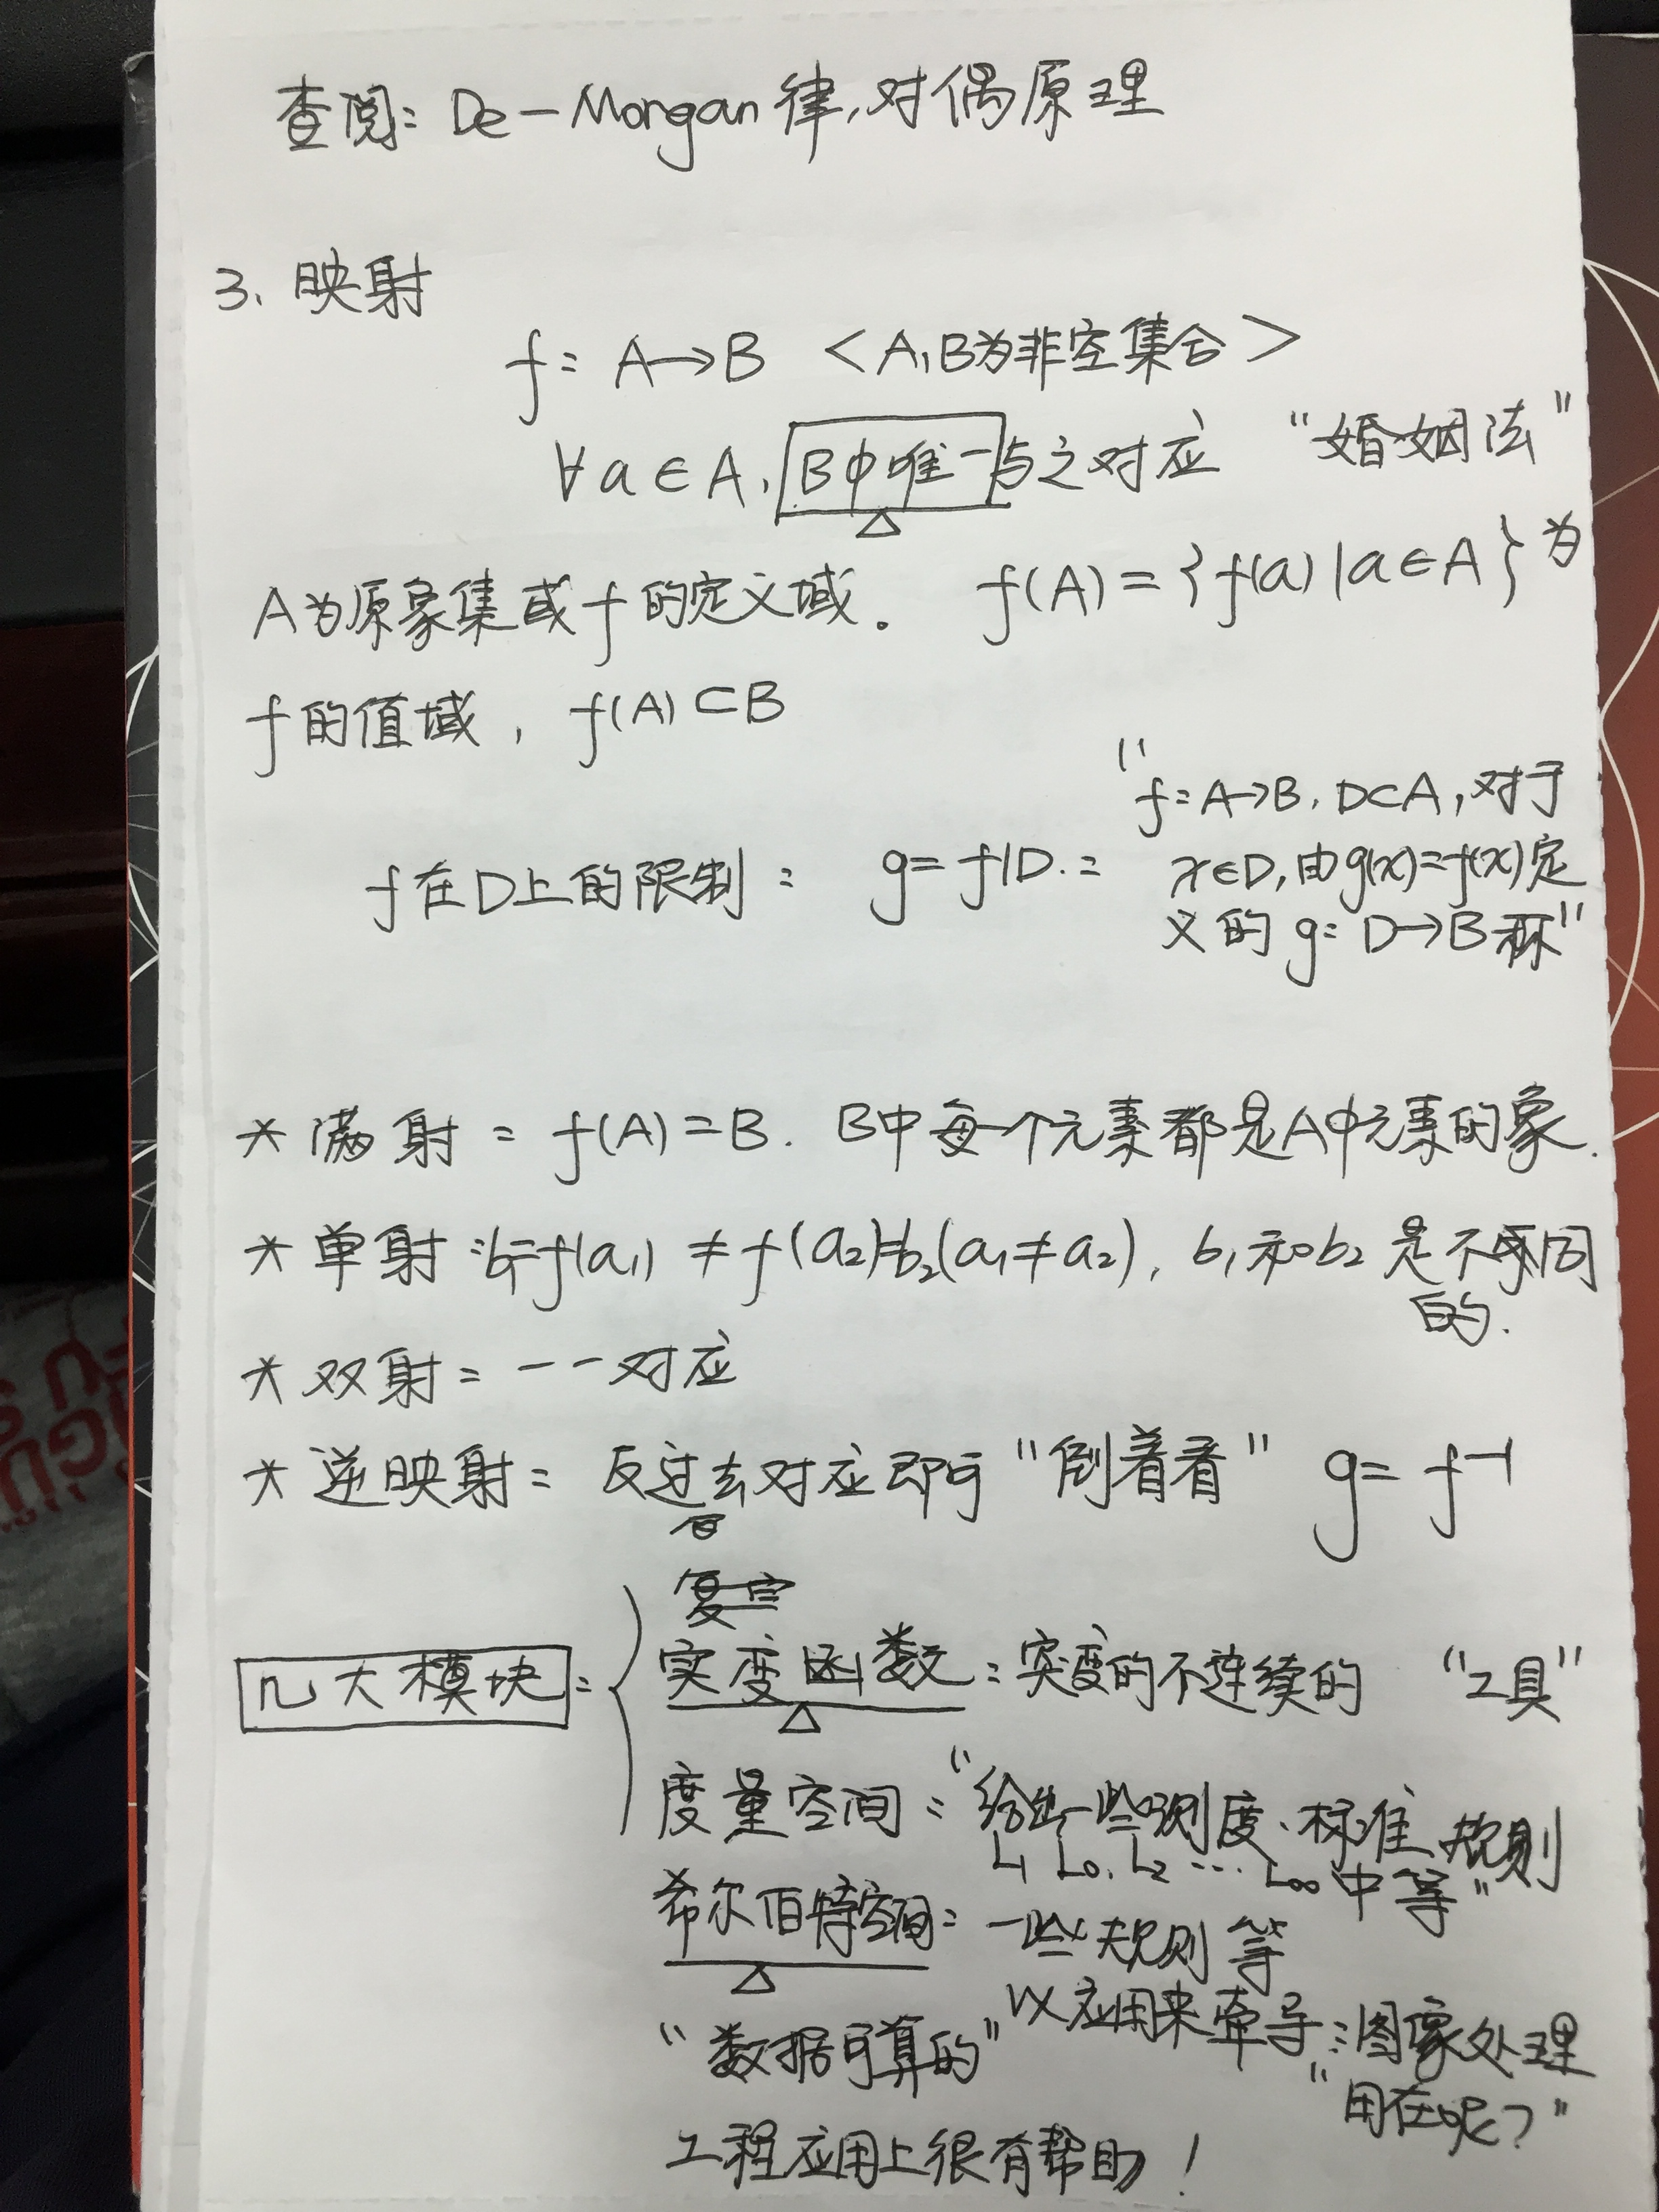 查阅: De-Morgan律,对偶原理
3. 映射
f: A→B <A,B为非空集合>
∀a∈A, B中唯一与之对应 “婚姻法”
A为原象集或f的定义域。 f(A)={f(a)|a∈A}为
f的值域, f(A)⊂B
f在D上的限制: g=f|D.:
“f:A→B, D⊂A,对于
x∈D,由g(x)=f(x)定
义的g: D→B称”
* 满射: f(A)=B. B中每一个元素都是A中元素的象.
* 单射: b₁=f(a₁) ≠ f(a₂)=b₂(a₁≠a₂), b₁和b₂是不同
的.
* 双射: 一一对应
* 逆映射: 反过去对应即可“倒着看” g=f⁻¹
几大模块:
实变函数: 突变的不连续的 “工具”
度量空间: “给出一些测度、标准、规则
L₁ L₀, L₂ … L∞中等”
希尔伯特空间: 一些规则等
“数据可算的” 以应用来牵导: 图像处理
“用在呢?”
工程应用上很有帮助!